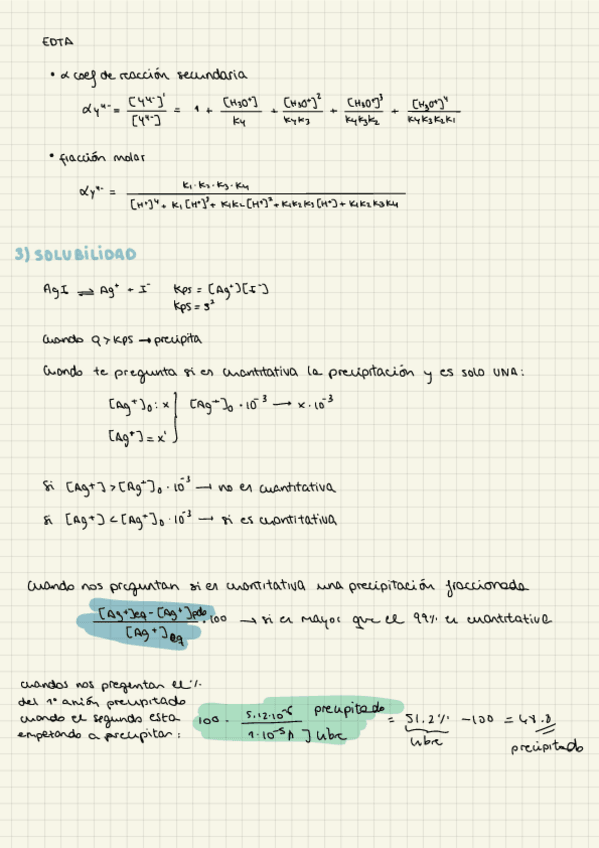 EDTA
• α coef de reacción secundaria
αy⁴⁻ = [Y⁴⁻]' / [Y⁴⁻] = 1 + [H₃O⁺] / K₄ + [H₃O⁺]² / K₄K₃ + [H₃O⁺]³ / K₄K₃K₂ + [H₃O⁺]⁴ / K₄K₃K₂K₁
• fracción molar
αy⁴⁻ = K₁·K₂·K₃·K₄ / [H⁺]⁴ + K₁[H⁺]³ + K₁K₂[H⁺]² + K₁K₂K₃[H⁺] + K₁K₂K₃K₄
3) SOLUBILIDAD
AgI ⇌ Ag⁺ + I⁻ Kps = [Ag⁺][I⁻]
Kps = s²
Cuando Q > Kps → precipita
Cuando te pregunta si es cuantitativa la precipitación y es solo UNA:
[Ag⁺]₀ : x } [Ag⁺]₀ · 10⁻³ → x · 10⁻³
[Ag⁺] = x'
si [Ag⁺] > [Ag⁺]₀ · 10⁻³ → no es cuantitativa
si [Ag⁺] < [Ag⁺]₀ · 10⁻³ → si es cuantitativa
Cuando nos preguntan si es cuantitativa una precipitación fraccionada
[Ag⁺]eq - [Ag⁺]pdo / [Ag⁺]eq · 100 → si es mayor que el 99% es cuantitativa
cuandos nos pregentan el %
del 1º anión precipitado
cuando el segundo esta
empezando a precipitar:
100 · 5.12·10⁻⁶ precipitado / 1·10⁻⁵ ] libre = 51.2% - 100 = 48.8
libre precipitado